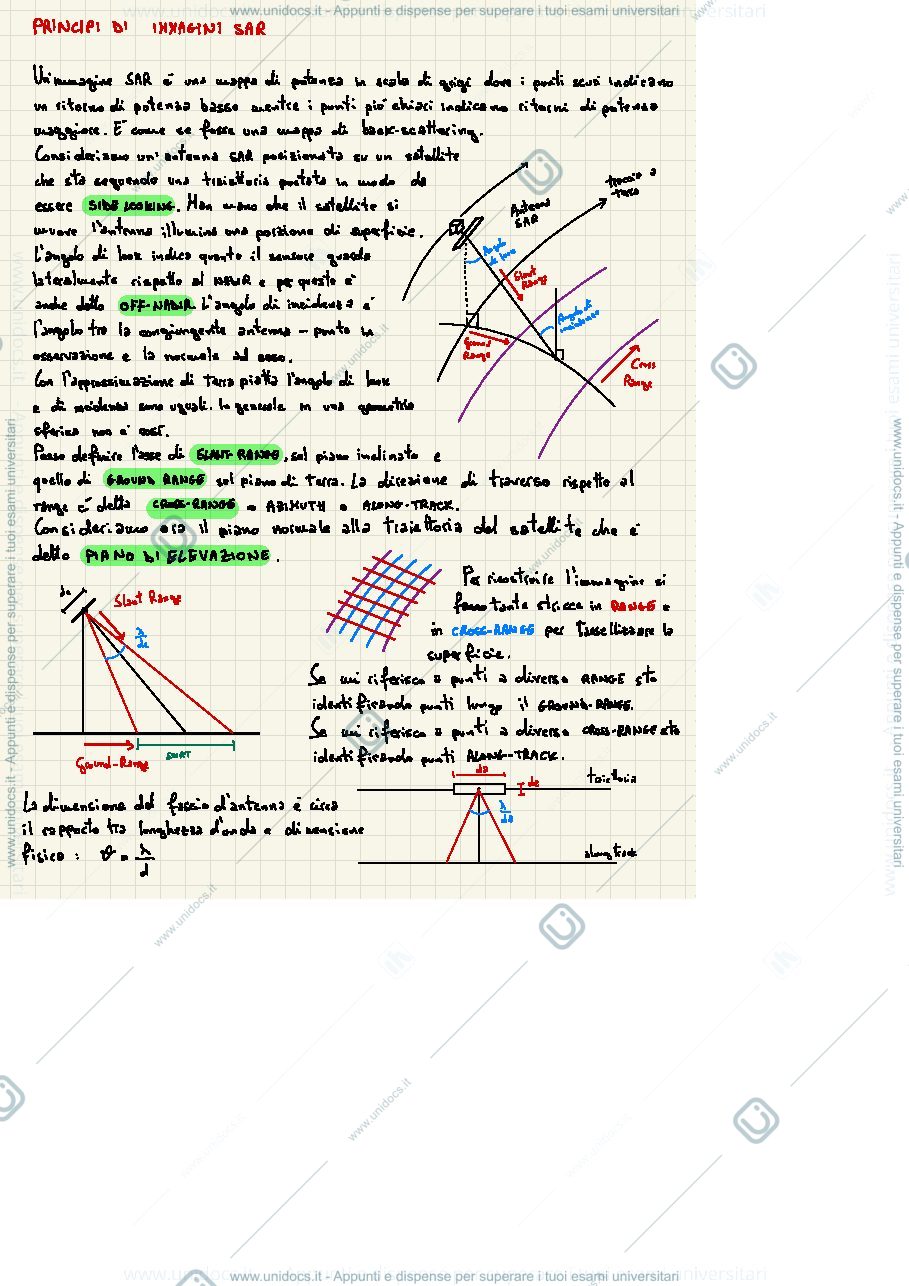 www.unidocs.it - Appunti e dispense per superare i tuoi esami universitari
PRINCIPI DI IMMAGINI SAR
Un'immagine SAR è una mappa di potenza in scala di grigi dove i punti scuri indicano
un ritorno di potenza basso mentre i punti più chiari indicano ritorni di potenza
maggiore. È come se fosse una mappa di back-scattering.
Consideriamo un'antenna SAR posizionata su un satellite
che sta seguendo una traiettoria puntata in modo da
essere SIDE LOOKING. Man mano che il satellite si
muove l'antenna illumina una porzione di superficie.
L'angolo di look indica quanto il sensore guarda
lateralmente rispetto al NADIR e per questo è
anche detto OFF-NADIR. L'angolo di incidenza è
l'angolo tra la congiungente antenna - punto in
osservazione e la normale ad esso.
Con l'approssimazione di terra piatta l'angolo di look
e di incidenza sono uguali. In generale in una geometria
sferica non è così.
traccia a
terra
Antenna
SAR
Angolo
di look
Slant
Range
Angolo di
incidenza
Ground
Range
Cross
Range
Posso definire l'asse di SLANT-RANGE, sul piano inclinato e
quello di GROUND RANGE sul piano di terra. La direzione di traverso rispetto al
range è detta CROSS-RANGE o AZIMUTH o ALONG-TRACK.
Consideriamo ora il piano normale alla traiettoria del satellite che è
detto PIANO DI ELEVAZIONE.
de
Slant Range
λ
de
Ground-Range
SWAT
Per ricostruire l'immagine si
fanno tante strisce in RANGE e
in CROSS-RANGE per tassellizzare la
superficie.
Se mi riferisco a punti a diverso RANGE sto
identificando punti lungo il GROUND-RANGE.
Se mi riferisco a punti a diverso CROSS-RANGE sto
identificando punti ALONG-TRACK.
da
de
traiettoria
λ
da
along track
La dimensione del fascio d'antenna è circa
il rapporto tra lunghezza d'onda e dimensione
fisica: θ = λ
d
www.unidocs.it
www.unidocs.it - Appunti e dispense per superare i tuoi esami universitari